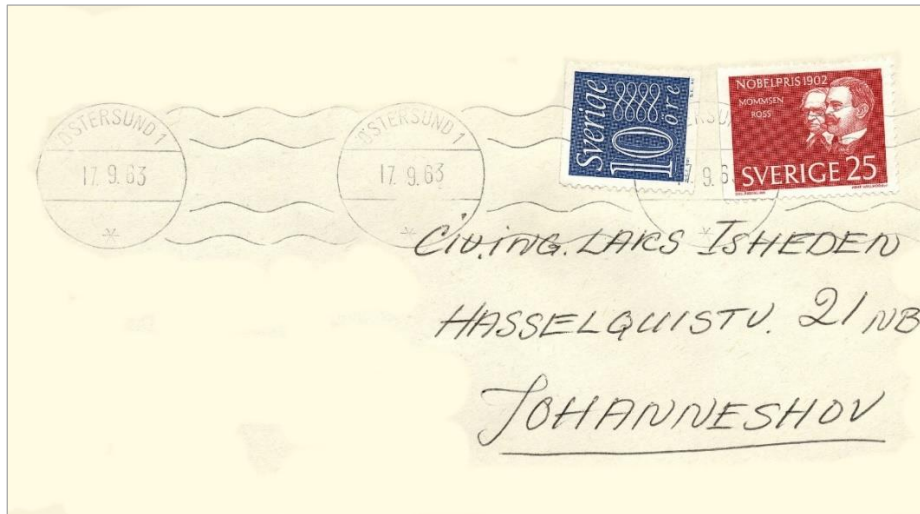 ÖSTERSUND 1
17.9.63
ÖSTERSUND 1
17.9.63
Sverige
10 öre
NOBELPRIS 1902
MOMMSEN
ROSS
SVERIGE 25
9.6
CIV.ING. LARS ISHEDEN
HASSELQUISTV. 21 NB
JOHANNESHOV